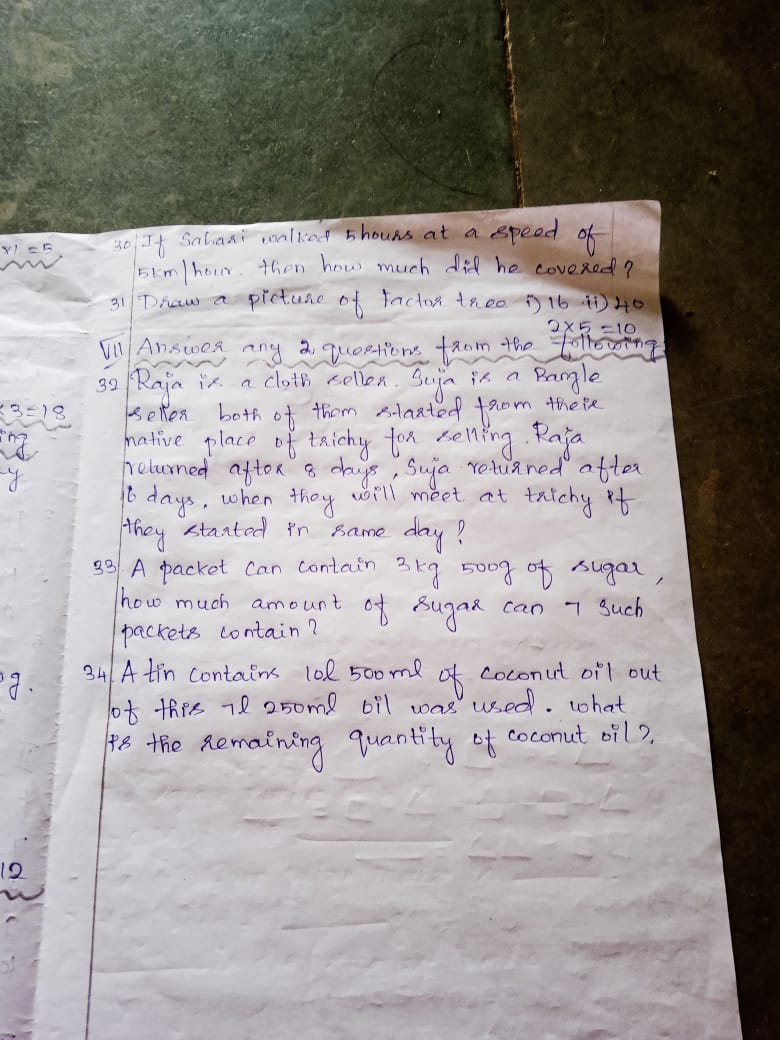 ×1 = 5
30 If Sabari walked 5 hours at a speed of
5km/hour. then how much did he covered?
31 Draw a picture of factor tree i) 16 ii) 40
2×5 =10
VII Answer any 2 questions from the following
32 Raja is a cloth seller. Suja is a Bangle
×3=18
seller both of them started from their
ing
native place of trichy for selling. Raja
y
returned after 8 days, Suja returned after
6 days, when they will meet at trichy if
they started in same day?
33. A packet can contain 3kg 500g of sugar,
how much amount of sugar can 7 such
packets contain?
34. A tin contains 10l 500ml of coconut oil out
g.
of this 7l 250ml oil was used. what
is the remaining quantity of coconut oil?.
12